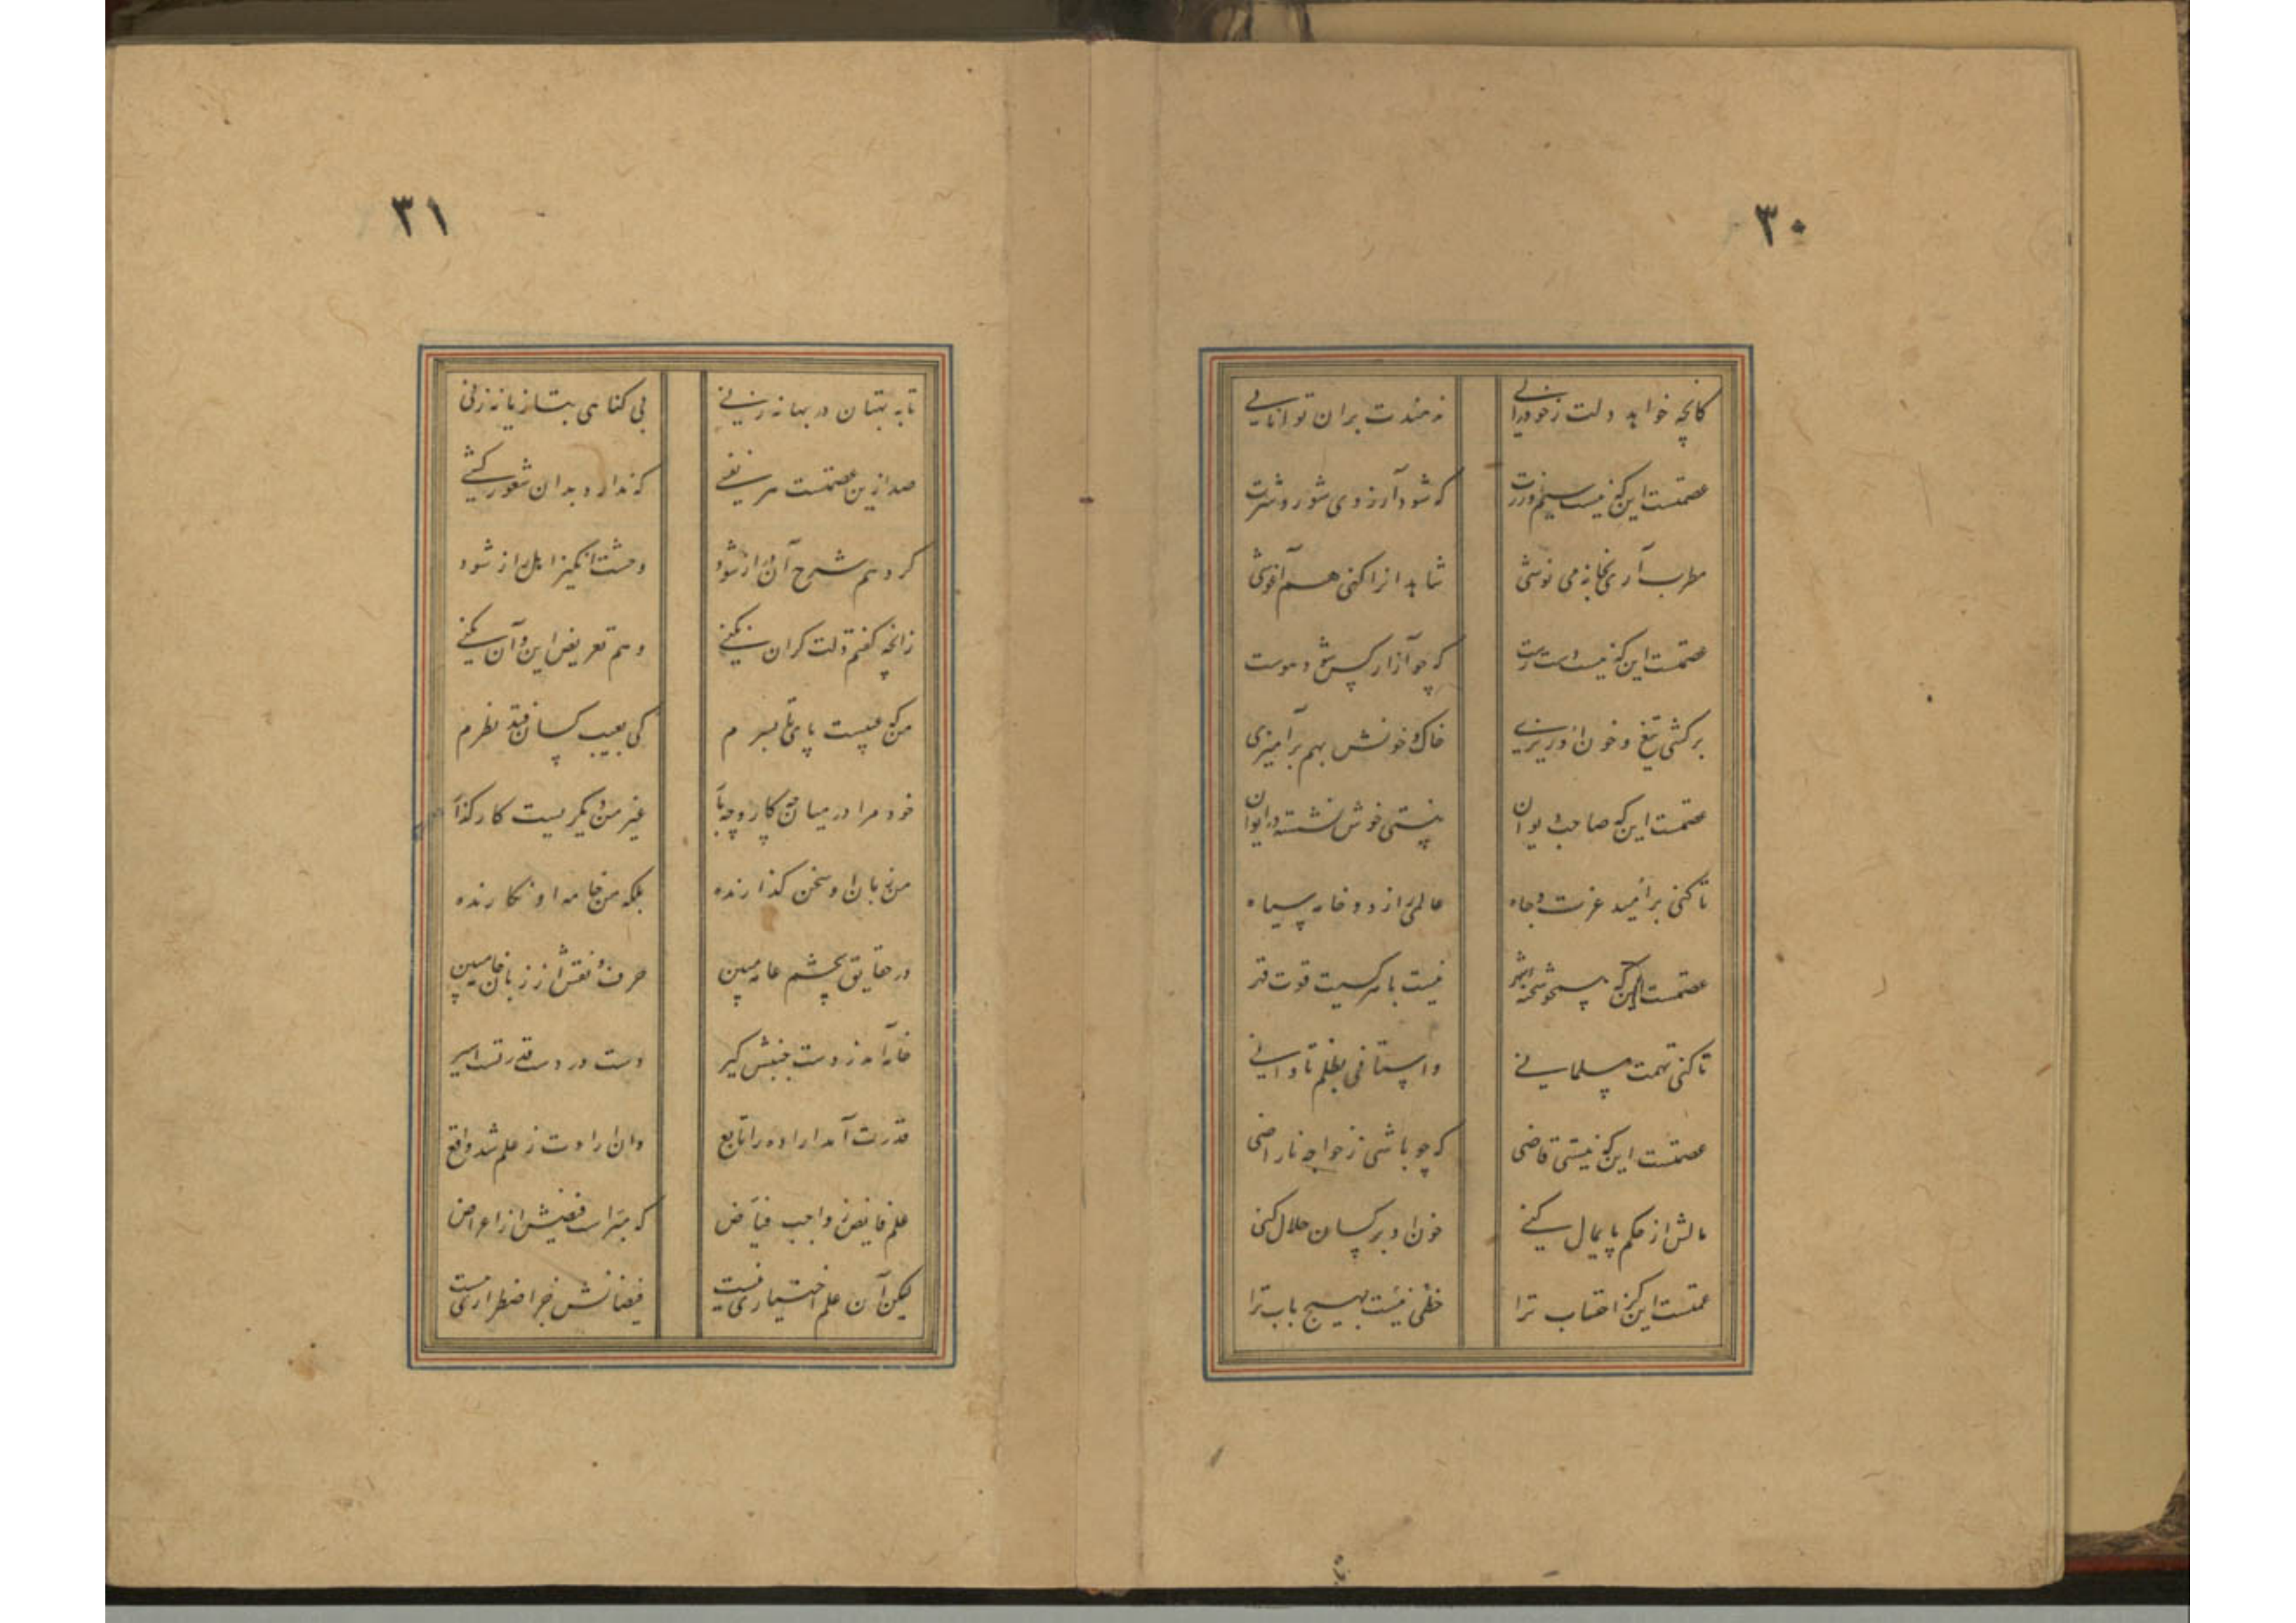 ۳۰
کانچه خواهد دلت ز خود رانی
نه مندت بران توانایی
عصمتست این که نیست سیم و زرت
که شود آرزوی شور و شرت
مطرب آری بخانه می نوشی
شاهد انرا کنی هم آغوشی
عصمتست این که نیست دست رست
که چو آزار کس شود هوست
برکشی تیغ و خون او ریزی
خاک و خونش بهم برآمیزی
عصمتست این که صاحب دیوان
نیستی خوش نشسته در ایوان
تا کنی بر امید عزت و جاه
عالمی را ز دود خامه سیاه
عصمتست این که همچو شحنه شهر
نیست با هر کسیت قوت قهر
تا کنی تهمت مسلمانی
واستانی بظلم تاوانی
عصمتست این که نیستی قاضی
که چو باشی ز خواجه ناراضی
مالش از حکم پایمال کنی
خون او بر کسان حلال کنی
عصمتست این کز احتساب ترا
حظی نیست بهیچ باب ترا
۳۱
تا به بهتان در بهانه زنی
بی گناهی بتازیانه زنی
صد ازین عصمتست هر نفسی
که ندارد بدان شعور کسی
گر دهم شرح آن دراز شود
وحشت انگیز اهل راز شود
زانچه گفتم دلت گران نکنی
وهم تعریض این و آن نکنی
من که عیبست پای تا بسرم
کی بعیب کسان فتد نظرم
خود مرا در میانه کار و چه بار
غیر من دیگریست کارگذار
من زبان او سخن گذارنده
بلکه من خامه او نگارنده
در حقایق بچشم عامه مبین
حرف و نقش از زبان خامه مبین
خامه آمد ز دست جنبش گیر
دست در دست قدرتست اسیر
قدرت آمد اراده را تابع
وان ارادت ز علم شد واقع
علم فایض ز واجب فیاض
که مبراست فیضش از اعراض
لیکن آن علم اختیاری نیست
فیضانش جز اضطراری نیست